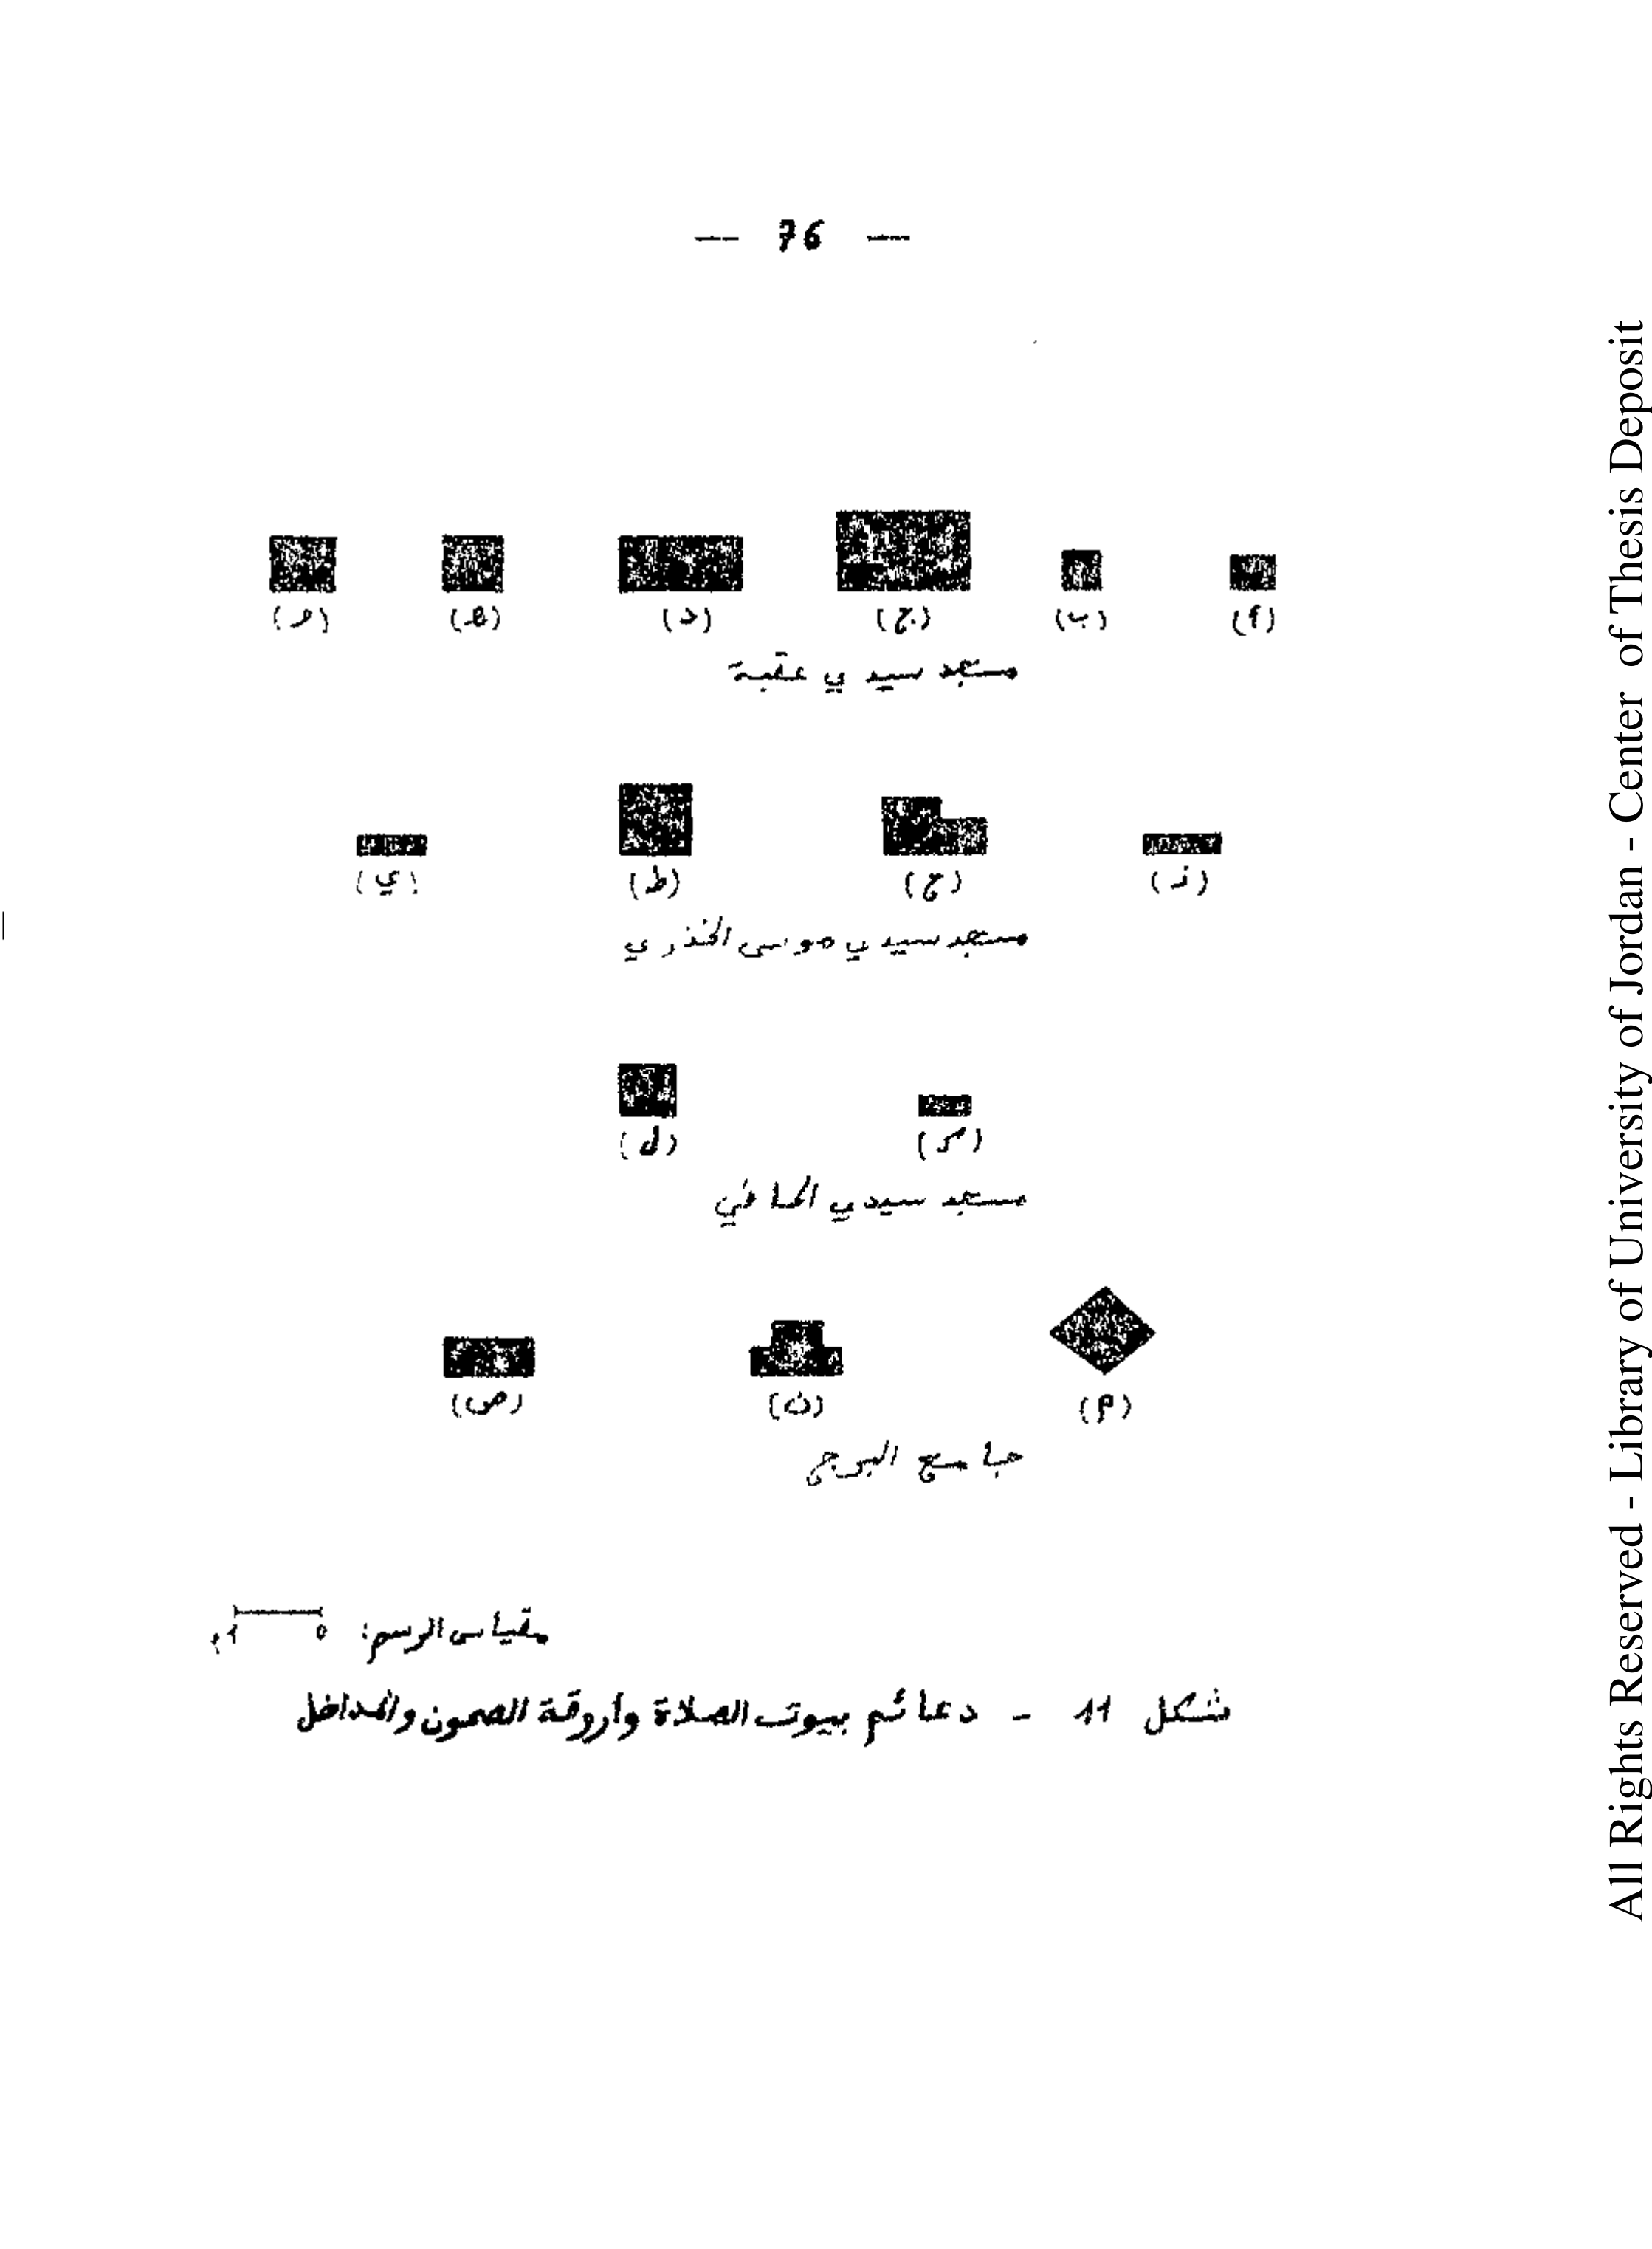 — 76 —
(أ) (ب) (ج) (د) (ه) (و)
مسجد سيدي عقبة
(ز) (ح) (ط) (ي)
مسجد سيدي موسى الخذري
(ك) (ل)
مسجد سيدي
(م) (ن) (ص)
جامع البرج
مقياس الرسم: 0 1م
شكل 11 - دعائم بيوت الصلاة وأروقة الصحون والمداخل
All Rights Reserved - Library of University of Jordan - Center of Thesis Deposit